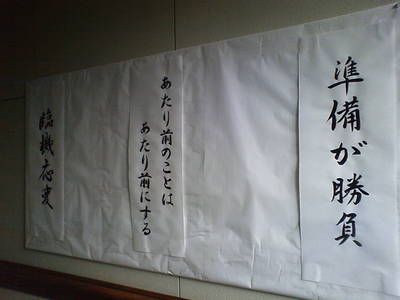 準備が勝負
あたり前のことは
あたり前にする
臨機応変